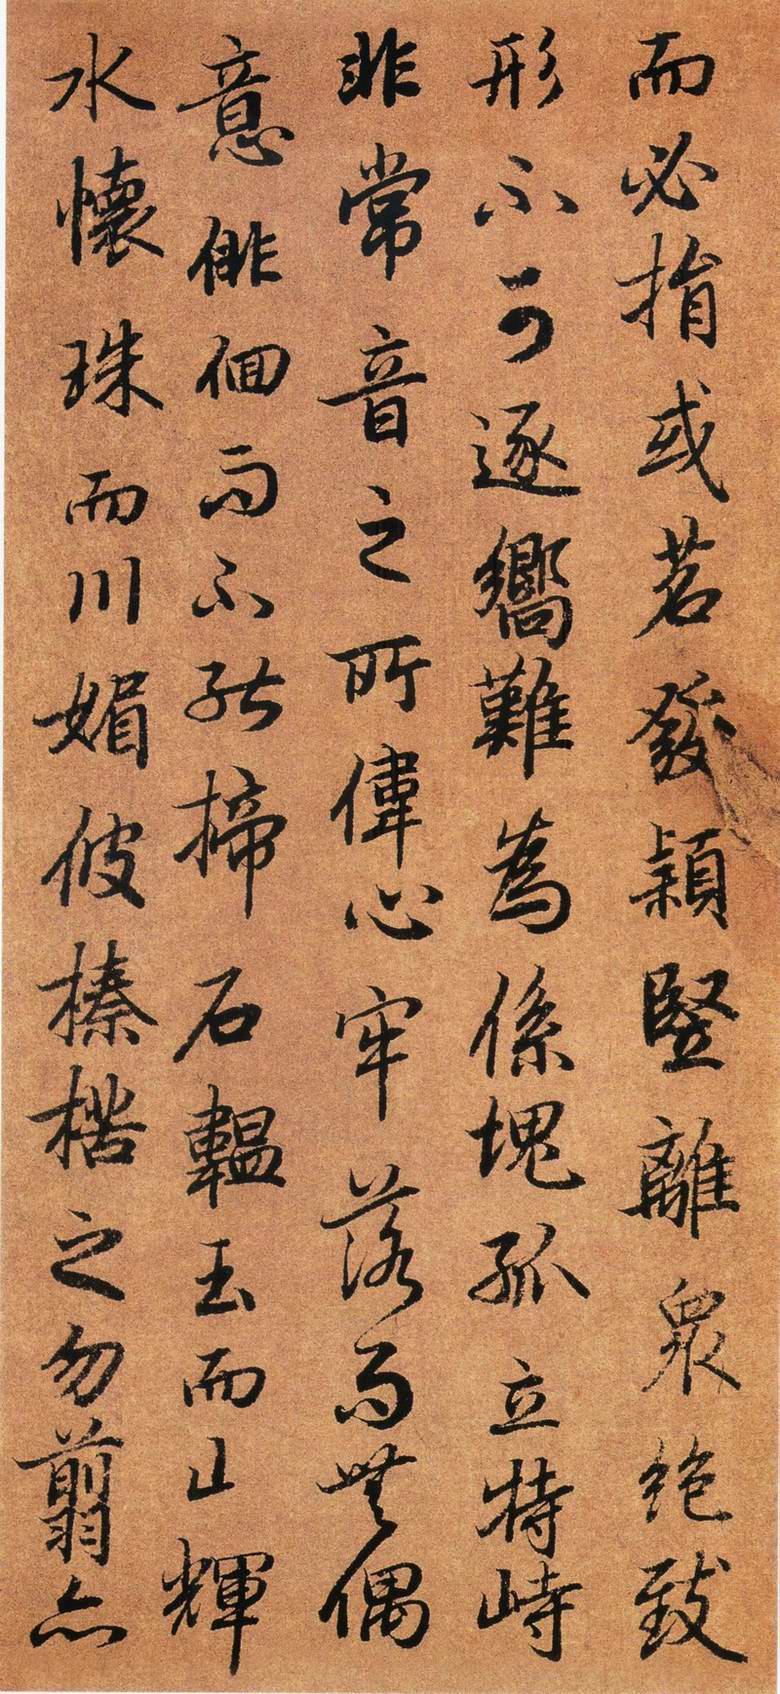 而必揃或苕發穎竪離衆絶致
形不可逐嚮難為係塊孤立特峙
非常音之所偉心牢落而無偶
意俳佪而不能揥石韞玉而山輝
水懷珠而川媚彼榛楛之勿翦亦